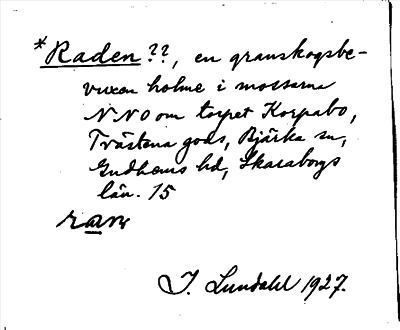 *Raden??, en granskogsbe-
vuxen holme i mossarna
NNO om torpet Korpabo,
Trästena gods, Bjärka sn,
Gudhems hd, Skaraborgs
län. 15
I. Lundahl 1927.